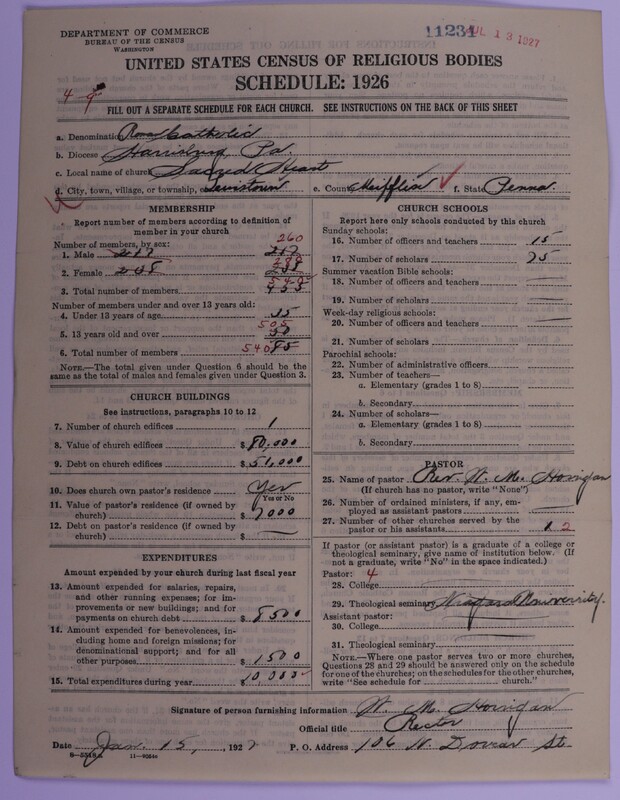 DEPARTMENT OF COMMERCE
BUREAU OF THE CENSUS
WASHINGTON
11234
JUL 13 1927
UNITED STATES CENSUS OF RELIGIOUS BODIES
SCHEDULE: 1926
4
FILL OUT A SEPARATE SCHEDULE FOR EACH CHURCH. SEE INSTRUCTIONS ON THE BACK OF THIS SHEET
a. Denomination Roman Catholic
b. Diocese Harrisburg, Pa.
c. Local name of church Sacred Heart
d. City, town, village, or township, etc. Lewistown e. County Meifflin f. State Penna.
MEMBERSHIP
Report number of members according to definition of member in your church
Number of members, by sex:
260
1. Male 217 217
288
2. Female 238 238
548
3. Total number of members 455
Number of members under and over 13 years old:
4. Under 13 years of age 35
505
5. 13 years old and over 50
6. Total number of members 540 85
NOTE.—The total given under Question 6 should be the same as the total of males and females given under Question 3.
CHURCH BUILDINGS
See instructions, paragraphs 10 to 12
7. Number of church edifices 1
8. Value of church edifices $ 80,000
9. Debt on church edifices $ 51,000
10. Does church own pastor's residence Yes
Yes or No
11. Value of pastor's residence (if owned by church) $ 7000
12. Debt on pastor's residence (if owned by church) $ —
EXPENDITURES
Amount expended by your church during last fiscal year
13. Amount expended for salaries, repairs, and other running expenses; for improvements or new buildings; and for payments on church debt $ 8500
14. Amount expended for benevolences, including home and foreign missions; for denominational support; and for all other purposes $ 1500
15. Total expenditures during year $ 10,000
CHURCH SCHOOLS
Report here only schools conducted by this church
Sunday schools:
16. Number of officers and teachers 15
17. Number of scholars 75
Summer vacation Bible schools:
18. Number of officers and teachers —
19. Number of scholars —
Week-day religious schools:
20. Number of officers and teachers —
21. Number of scholars —
Parochial schools:
22. Number of administrative officers
23. Number of teachers—
a. Elementary (grades 1 to 8)
b. Secondary
24. Number of scholars—
a. Elementary (grades 1 to 8)
b. Secondary
PASTOR
25. Name of pastor Rev. W. M. Horrigan
(If church has no pastor, write "None")
26. Number of ordained ministers, if any, employed as assistant pastors —
27. Number of other churches served by the pastor or his assistants 1 2
If pastor (or assistant pastor) is a graduate of a college or theological seminary, give name of institution below. (If not a graduate, write "No" in the space indicated.)
Pastor: 4
28. College
29. Theological seminary Niagara University.
Assistant pastor:
30. College
31. Theological seminary
NOTE.—Where one pastor serves two or more churches, Questions 28 and 29 should be answered only on the schedule for one of the churches; on the schedules for the other churches, write "See schedule for church."
Signature of person furnishing information W. M. Horrigan
Official title Rector
Date Jan. 15, 1927 P. O. Address 106 N. Dorcas Ste.
8—5518a 11—9064a